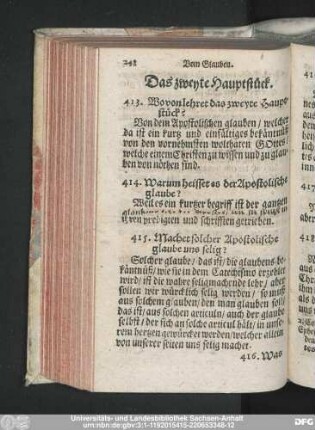 242 Vom Glauben.
Das zweyte Hauptstück.
413. Wovon lehret das zweyte Haupt-
stück?
Von dem Apostolischen glauben / welcher
da ist ein kurtz und einfältiges bekäntnüß
von den vornehmsten wolthaten GOttes /
welche einem Christen zu wissen und zu glau-
ben von nöthen sind.
414. Warum heisset es der Apostolische
glaube?
Weil es ein kurtzer begriff ist der gantzen
schrifften getrieben.
415. Machet solcher Apostolische
glaube uns selig?
Solcher glaube / das ist / die glaubens-be-
käntnüß / wie sie in dem Catechismo erzehlet
wird / ist die wahre seligmachende lehr / aber
sollen wir würcklich selig werden / so muß
aus solchem glauben / den man glauben soll /
das ist / aus solchen articuln / auch der glaube
selbst / der sich an solche articul hält / in unse-
rem hertzen gewürcket werden / welcher allein
von unserer seiten uns selig machet.
416. Was
Universitäts- und Landesbibliothek Sachsen-Anhalt
urn:nbn:de:gbv:3:1-1192015415-220653348-12
DFG